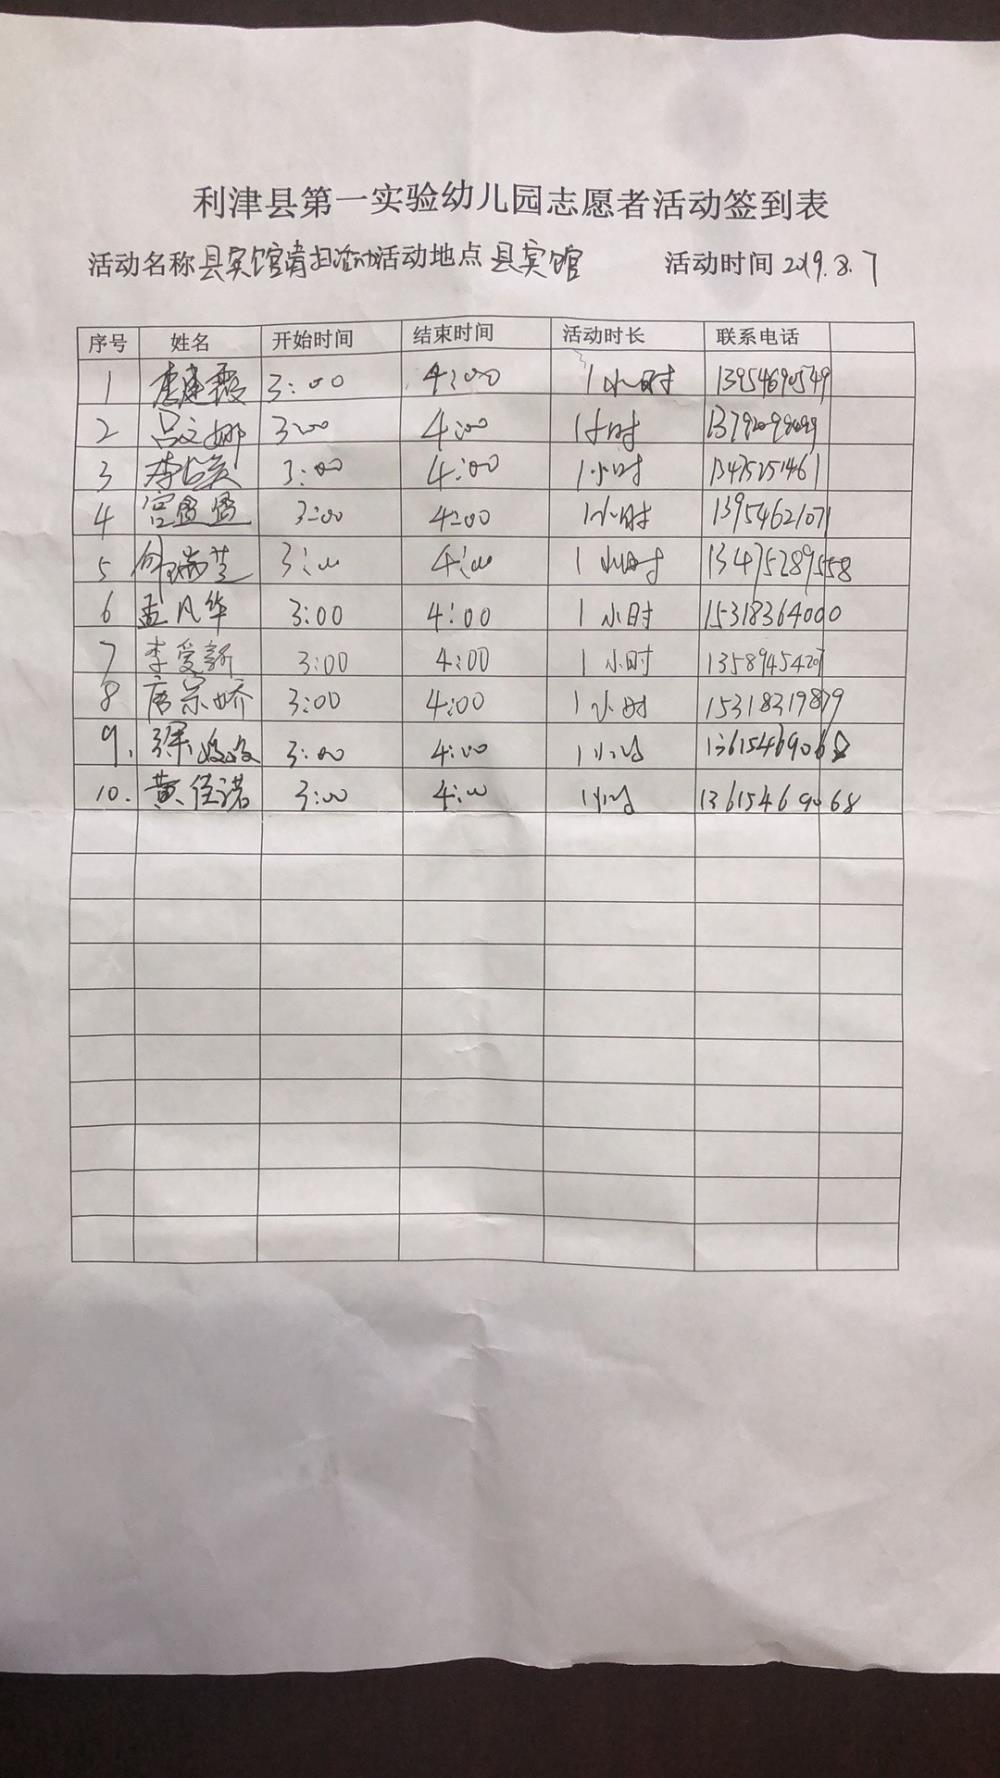 利津县第一实验幼儿园志愿者活动签到表
活动名称 县宾馆清扫活动 活动地点 县宾馆 活动时间 2019.8.7
序号 姓名 开始时间 结束时间 活动时长 联系电话
1 李建霞 3:00 4:00 1小时 13954690549
2 吕文娜 3:00 4:00 1小时
3 3:00 4:00 1小时 13475251461
4 宫盈盈 3:00 4:00 1小时 13954621071
5 瑞芝 3:00 4:00 1小时 13475289558
6 孟凡华 3:00 4:00 1小时 15318364000
7 李爱新 3:00 4:00 1小时 13589454207
8 唐宗娇 3:00 4:00 1小时 15318319879
9. 3:00 4:00 1小时 13615469068
10. 黄佳诺 3:00 4:00 1小时 13615469068